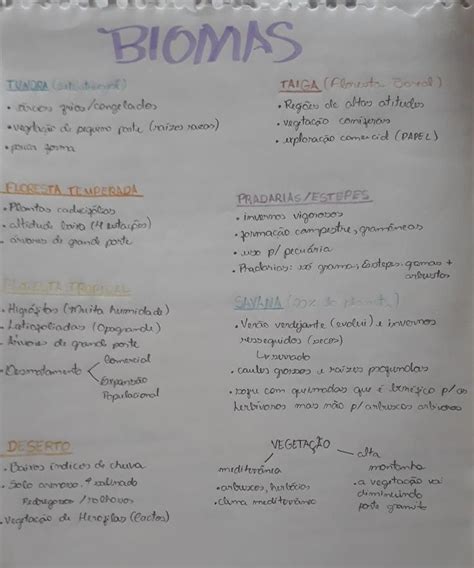 BIOMAS
TUNDRA
• solos frios/congelados
• vegetação de pequeno porte (raízes rasas)
• pouca fauna
TAIGA (Floresta Boreal)
• Regiões de altas atitudes
• vegetação coníferas
• exploração comercial (PAPEL)
FLORESTA TEMPERADA
• Plantas caducifólias
• altitude baixa (4 estações)
• árvores de grande porte
PRADARIAS/ESTEPES
• invernos vigorosos
• formação campestre, gramíneas
• uso p/ pecuária
• Pradarias: só gramas, Estepes: gramas + arbustos
FLORESTA TROPICAL
• Higrófitas (Muita humidade)
• Latifoliadas
• Árvores de grande porte
• Desmatamento
Comercial
Expansão
Populacional
SAVANA
• Verão verdejante (evolui) e invernos
ressequidos (secos)
• caules grossos e raízes profundas
• sofre com queimadas que é benéfico p/ os
herbívoros mas não p/ arbustos arbóreos
DESERTO
• Baixos índices de chuva
• Solo arenoso, salinado
Pedregosos
• vegetação de Xerófilas (Cactos)
VEGETAÇÃO
mediterrânea
• arbustos, herbácea
• clima mediterrâneo
alta
montanha
• a vegetação vai
diminuindo
porte